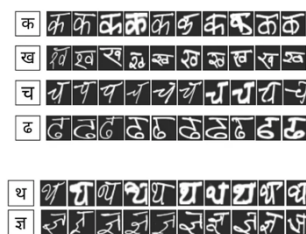 क क क क क क क क क क क
ख ख ख ख ख ख ख ख ख ख ख
च च च च च च च च च च च
ढ ढ ढ ढ ढ ढ ढ ढ ढ ढ ढ
थ थ थ थ थ थ थ थ थ थ थ
ज्ञ ज्ञ ज्ञ ज्ञ ज्ञ ज्ञ ज्ञ ज्ञ ज्ञ ज्ञ ज्ञ